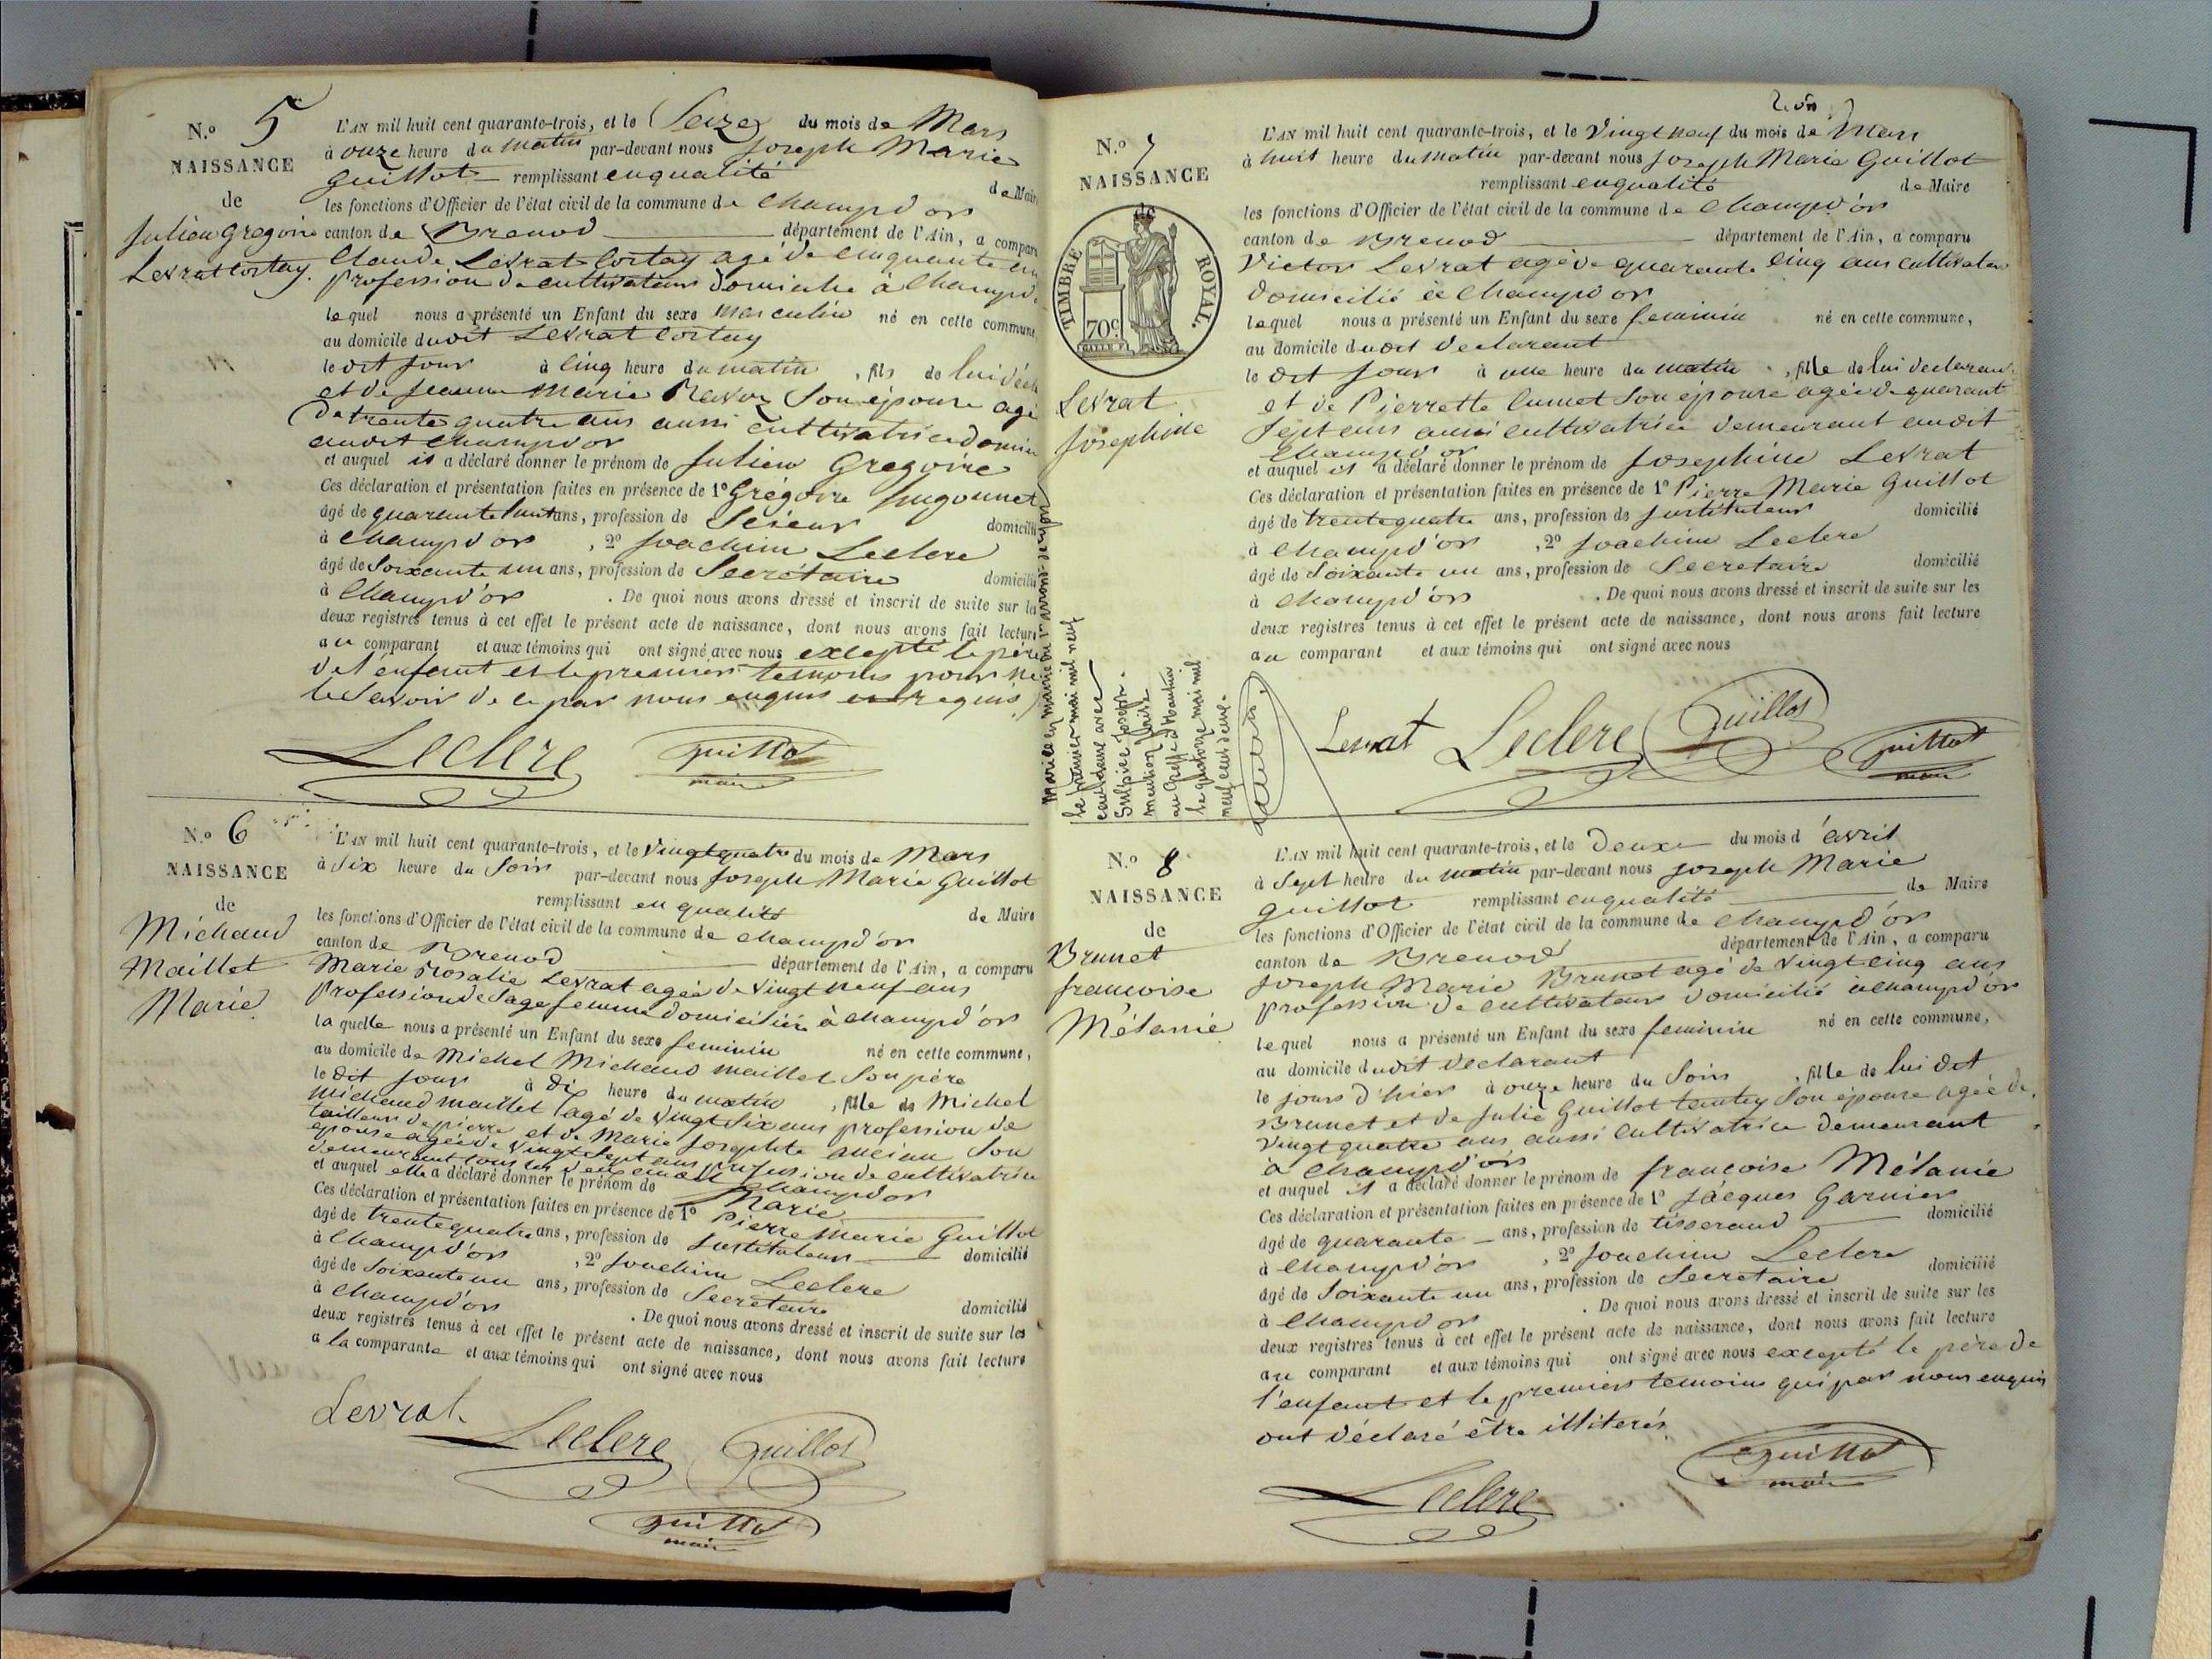 N.º 5
NAISSANCE
de
Julien Gregoire
Levrat Cortay.
L'AN mil huit cent quarante-trois, et le Seize du mois de Mars
à onze heure du matin par-devant nous Joseph Marie
Guillot remplissant en qualité de Maire
les fonctions d'Officier de l'état civil de la commune de Champd'or
canton de Brenod département de l'Ain, a comparu
Claude Levrat Cortay agé de cinquante
profession de cultivateur domicilié à Champd'
lequel nous a présenté un Enfant du sexe masculin né en cette commune,
au domicile dudit Levrat Cortay
le dit jour à cinq heure du matin, fils de lui
et de Jeanne Marie Ravoz Son épouse agé
de trente quatre ans aussi cultivatrice
audit Champd'or
et auquel il a déclaré donner le prénom de Julien Gregoire
Ces déclaration et présentation faites en présence de 1º Grégoire Hugonnet
âgé de quarante huit ans, profession de Scieur domicilié
à Champd'or, 2º Joachim Leclere
âgé de Soixante un ans, profession de Secrétaire domicilié
à Champd'or. De quoi nous avons dressé et inscrit de suite sur les
deux registres tenus à cet effet le présent acte de naissance, dont nous avons fait lecture
au comparant et aux témoins qui ont signé avec nous excepté le père
de l'enfant et le premier temoins pour ne
le Savoir de ce par nous enquis et requis
Leclere Guillot
maire
N.º 6
NAISSANCE
de
Michaud
Maillet
Marie
L'AN mil huit cent quarante-trois, et le Vingt quatre du mois de Mars
à Six heure du Soir par-devant nous Joseph Marie Guillot
remplissant en qualité de Maire
les fonctions d'Officier de l'état civil de la commune de Champd'or
canton de Brenod département de l'Ain, a comparu
Marie Rosalie Levrat agée de vingt neuf ans
Profession de Sage femme domiciliée à Champd'or
laquelle nous a présenté un Enfant du sexe feminin né en cette commune,
au domicile de Michel Michaud Maillet Son père
le dit jour à dix heure du matin, fille de Michel
Michaud Maillet agé de Vingt Six ans profession de
tailleur de pierre et de Marie Josephte Ancian Son
épouse agée de Vingt Sept ans profession de cultivatrice
demeurant tous les deux audit Champd'or
et auquel elle a déclaré donner le prénom de Marie
Ces déclaration et présentation faites en présence de 1º Pierre Marie Guillot
âgé de trente quatre ans, profession de Instituteur domicilié
à Champd'or, 2º Joachim Leclere
âgé de Soixante un ans, profession de Secretaire domicilié
à Champd'or. De quoi nous avons dressé et inscrit de suite sur les
deux registres tenus à cet effet le présent acte de naissance, dont nous avons fait lecture
a la comparante et aux témoins qui ont signé avec nous
Levrat
Leclere Guillot
Guillot
maire
N.º 7
NAISSANCE
de
TIMBRE ROYAL.
70c
Levrat
Josephine
Mariée en mairie du 1er arrond.
le premier mai mil neuf
cent deux avec
Sulpice Joseph.
mention faite
au Greffe d'Nantua
le quinze mai mil
neuf cent deux.
L'AN mil huit cent quarante-trois, et le Vingt neuf du mois de Mars
à huit heure du matin par-devant nous Joseph Marie Guillot
remplissant en qualité de Maire
les fonctions d'Officier de l'état civil de la commune de Champd'or
canton de Brenod département de l'Ain, a comparu
Victor Levrat agé de quarante cinq ans cultivateur
domicilié à Champd'or
lequel nous a présenté un Enfant du sexe feminin né en cette commune,
au domicile dudit declarant
le dit jour à une heure du matin, fille de lui declarant
et de Pierrette Cumet Son épouse agée de quarante
Sept ans aussi cultivatrice demeurant audit
Champd'or
et auquel il a déclaré donner le prénom de Josephine Levrat
Ces déclaration et présentation faites en présence de 1º Pierre Marie Guillot
âgé de trente quatre ans, profession de Instituteur domicilié
à Champd'or, 2º Joachim Leclere
âgé de Soixante un ans, profession de Secretaire domicilié
à Champd'or. De quoi nous avons dressé et inscrit de suite sur les
deux registres tenus à cet effet le présent acte de naissance, dont nous avons fait lecture
au comparant et aux témoins qui ont signé avec nous
Levrat Leclere Guillot Guillot
maire
N.º 8
NAISSANCE
de
Brunet
francoise
Mélanie
L'AN mil huit cent quarante-trois, et le Deux du mois d'avril
à Sept heure du matin par-devant nous Joseph Marie
Guillot remplissant en qualité de Maire
les fonctions d'Officier de l'état civil de la commune de Champd'or
canton de Brenod département de l'Ain, a comparu
Joseph Marie Brunet agé de vingt cinq ans
profession de cultivateur domicilié à Champd'or
lequel nous a présenté un Enfant du sexe feminin né en cette commune,
au domicile dudit declarant
le jour d'hier à onze heure du Soir, fille de lui dit
Brunet et de Julie Guillot tantey Son épouse agée de
vingt quatre ans aussi cultivatrice demeurant
à Champd'or
et auquel il a déclaré donner le prénom de francoise Mélanie
Ces déclaration et présentation faites en présence de 1º Jacques Garnier
âgé de quarante ans, profession de tisserand domicilié
à Champd'or, 2º Joachim Leclere
âgé de Soixante un ans, profession de Secretaire domicilié
à Champd'or. De quoi nous avons dressé et inscrit de suite sur les
deux registres tenus à cet effet le présent acte de naissance, dont nous avons fait lecture
au comparant et aux témoins qui ont signé avec nous excepté le père de
l'enfant et le premier temoins qui par nous enquis
ont déclaré être illiterés
Leclere Guillot
maire